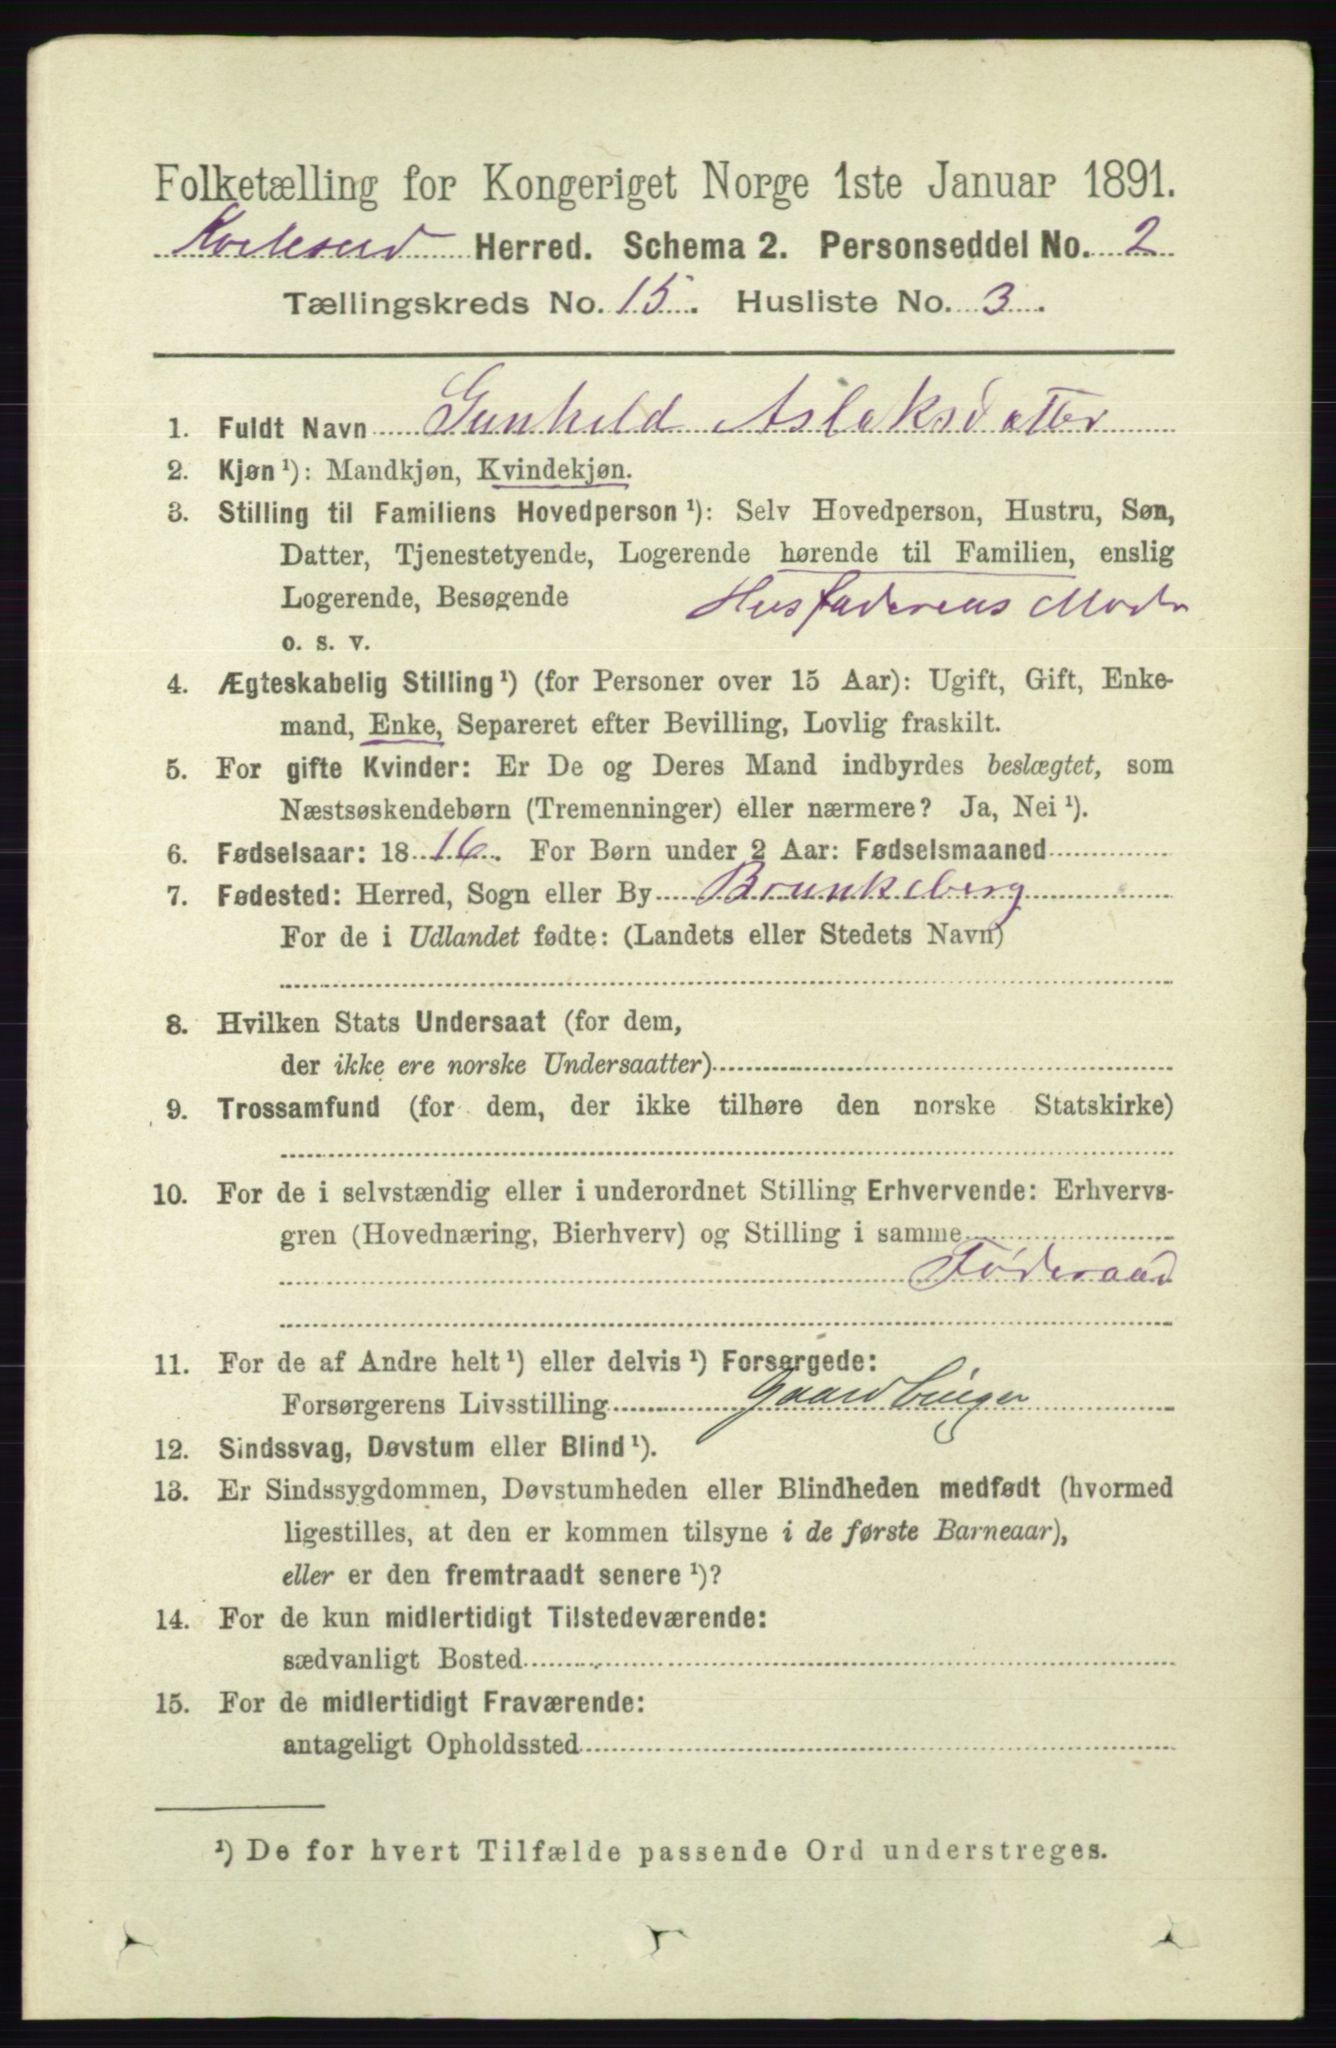 Folketælling for Kongeriget Norge 1ste Januar 1891.
Kviteseid Herred. Schema 2. Personseddel No. 2
Tællingskreds No. 15. Husliste No. 3.
1. Fuldt Navn Gunhild Aslaksdatter
2. Kjøn ¹): Mandkjøn, Kvindekjøn.
3. Stilling til Familiens Hovedperson ¹): Selv Hovedperson, Hustru, Søn,
Datter, Tjenestetyende, Logerende hørende til Familien, enslig
Logerende, Besøgende Husfaderens Moder
o. s. v.
4. Ægteskabelig Stilling ¹) (for Personer over 15 Aar): Ugift, Gift, Enke-
mand, Enke, Separeret efter Bevilling, Lovlig fraskilt.
5. For gifte Kvinder: Er De og Deres Mand indbyrdes beslægtet, som
Næstsøskendebørn (Tremenninger) eller nærmere? Ja, Nei ¹).
6. Fødselsaar: 18 16. For Børn under 2 Aar: Fødselsmaaned
7. Fødested: Herred, Sogn eller By Brunkeberg
For de i Udlandet fødte: (Landets eller Stedets Navn)
8. Hvilken Stats Undersaat (for dem,
der ikke ere norske Undersaatter)
9. Trossamfund (for dem, der ikke tilhøre den norske Statskirke)
10. For de i selvstændig eller i underordnet Stilling Erhvervende: Erhvervs-
gren (Hovednæring, Bierhverv) og Stilling i samme
Føderaad
11. For de af Andre helt ¹) eller delvis ¹) Forsørgede:
Forsørgerens Livsstilling Gaardbruger
12. Sindssvag, Døvstum eller Blind ¹).
13. Er Sindssygdommen, Døvstumheden eller Blindheden medfødt (hvormed
ligestilles, at den er kommen tilsyne i de første Barneaar),
eller er den fremtraadt senere ¹)?
14. For de kun midlertidigt Tilstedeværende:
sædvanligt Bosted
15. For de midlertidigt Fraværende:
antageligt Opholdssted
¹) De for hvert Tilfælde passende Ord understreges.